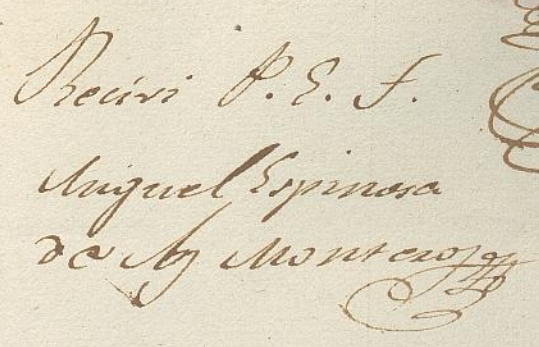 Recivi P. E. F.
Miguel Espinosa
de Monterosa